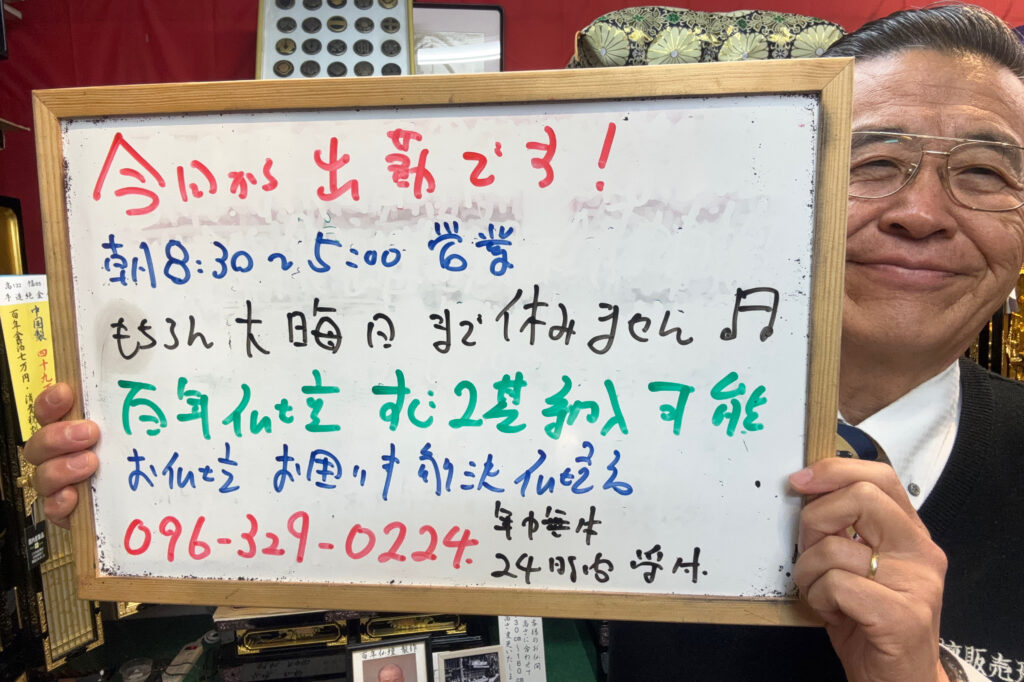 今日から出勤です!
朝8:30~5:00 営業
もちろん大晦日まで休みません♬
百年仏壇 すぐ2基納入可能
お仏壇 お困り 解決 仏壇
096-329-0224.
年中無休
24時間受付.
手造純金
中国製 四十九
百年仏壇 製作
高さに合わせて
販売